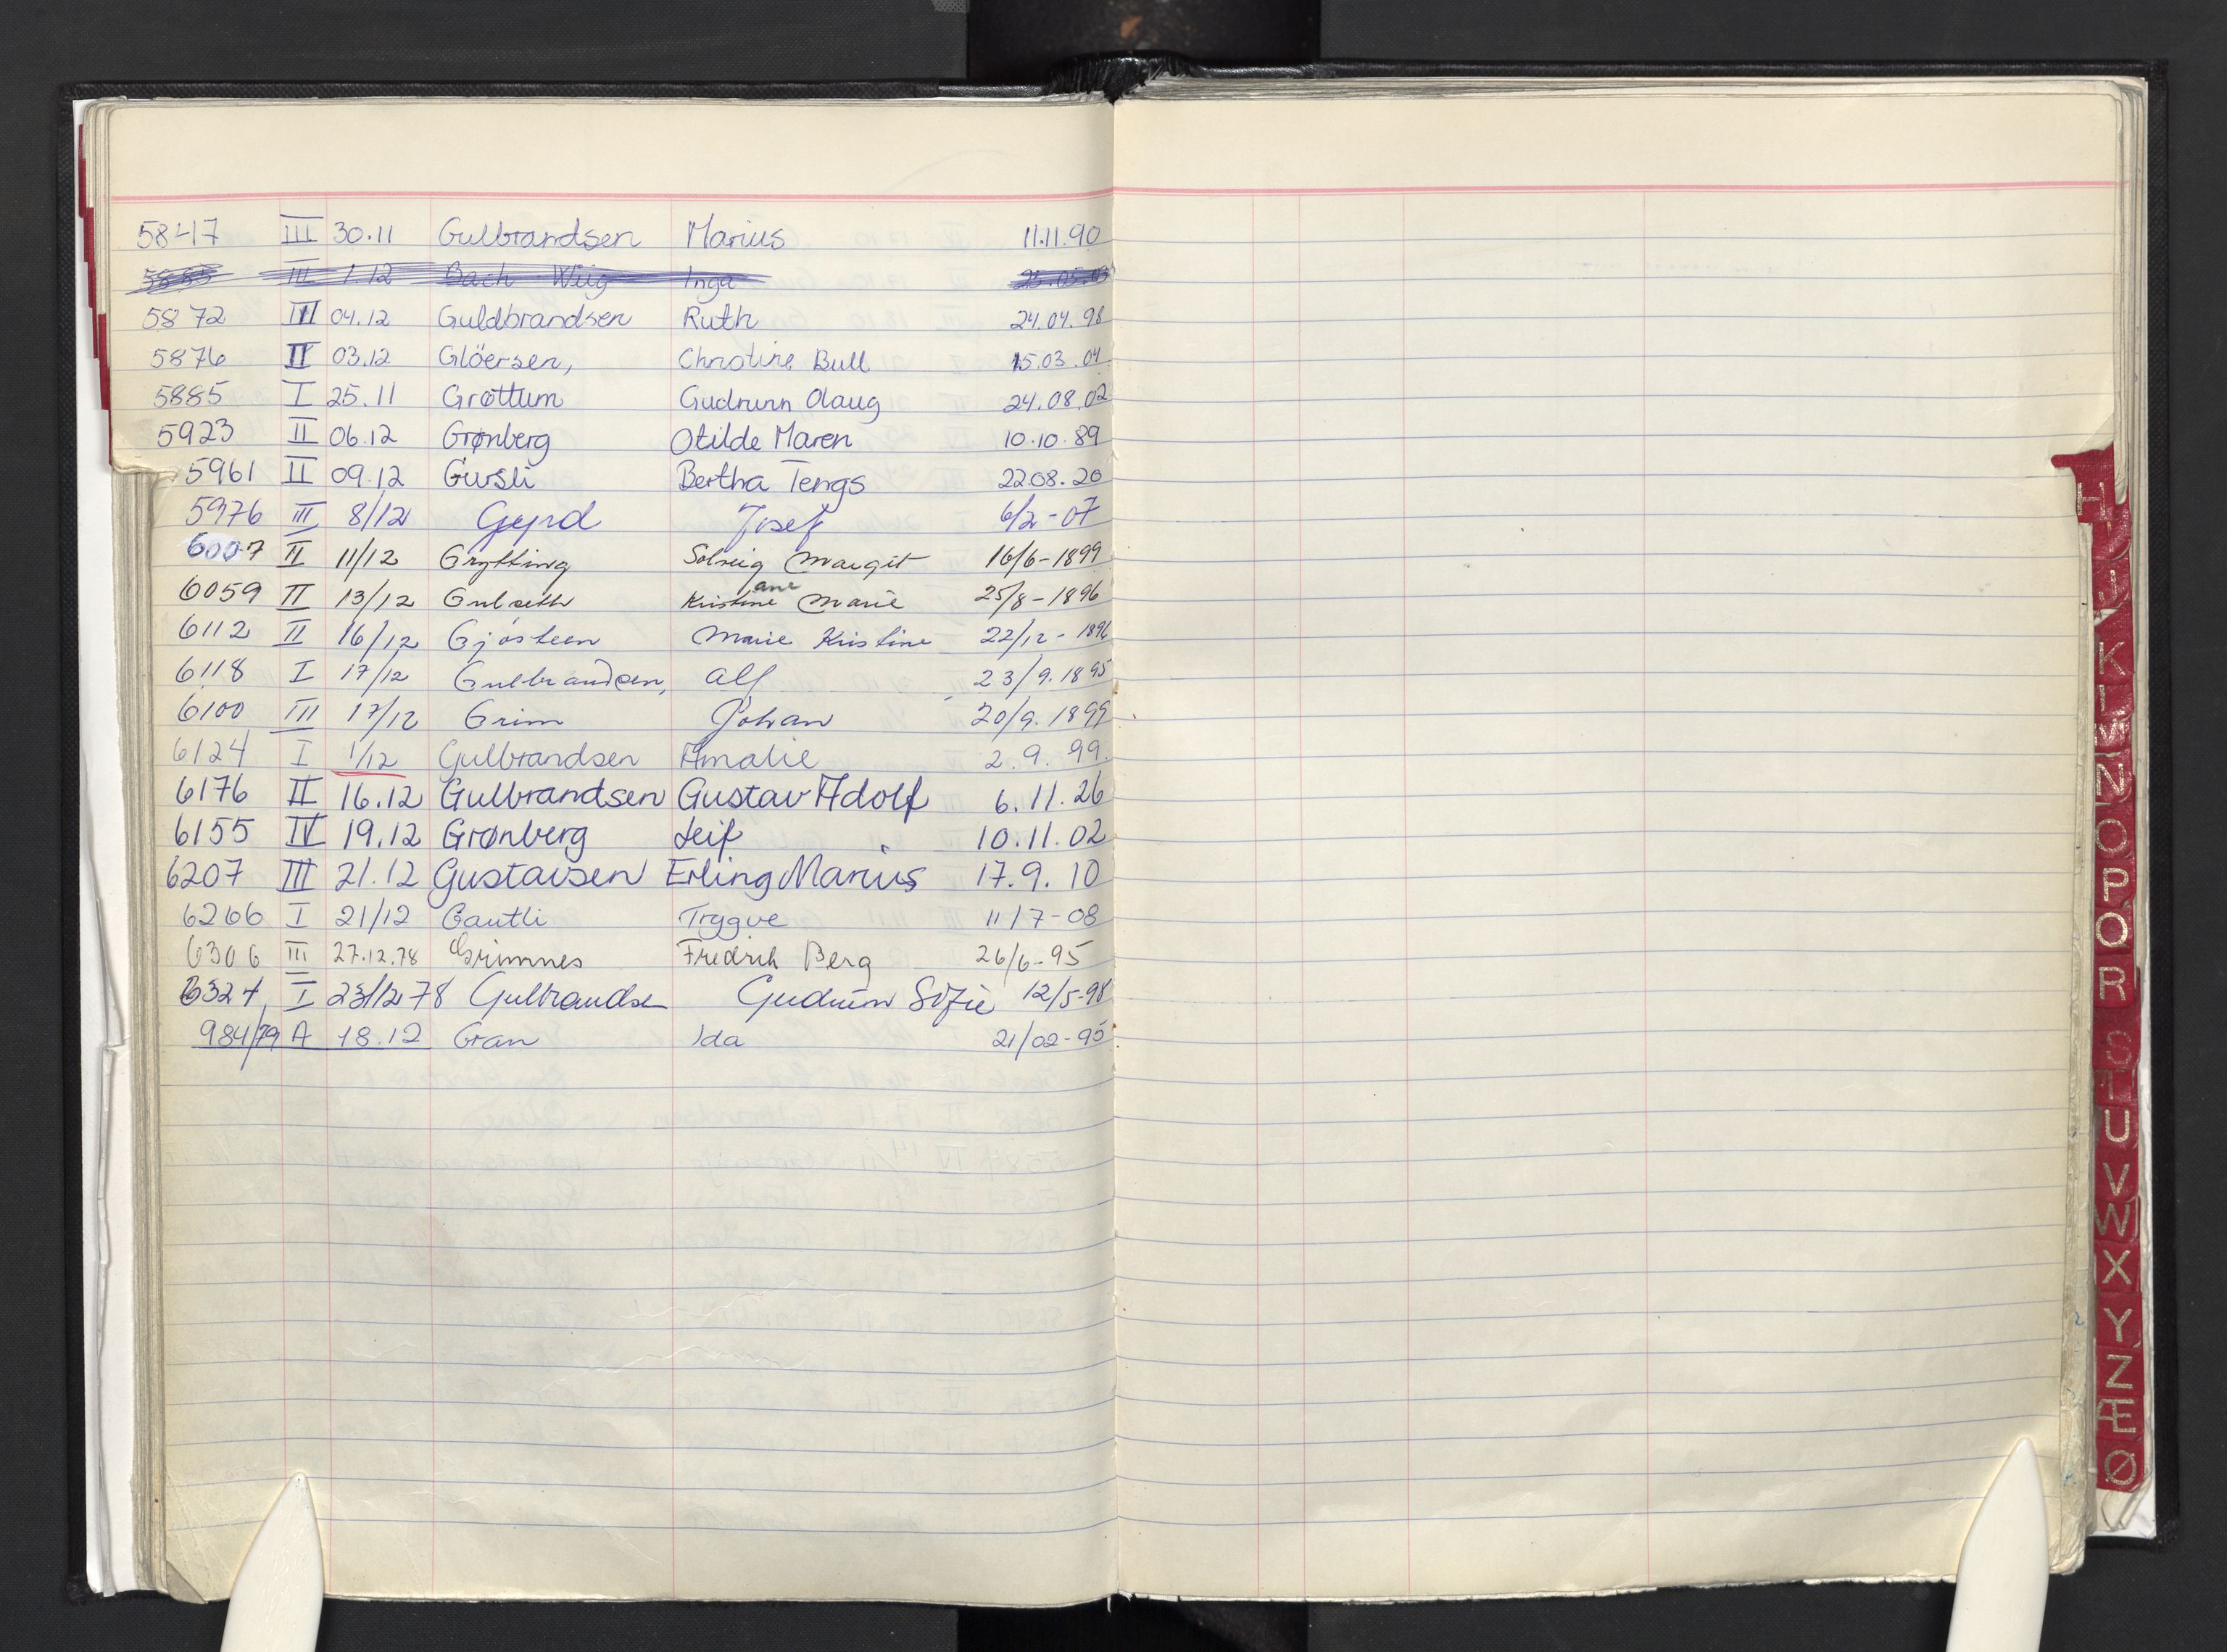 5847 III 30.11 Gulbrandsen Marius 11.11.90
III 1.12 Bach Wiig Inga 25.05.03
5872 III 04.12 Guldbrandsen Ruth 24.04.98
5876 II 03.12 Glöersen, Christine Bull 15.03.04
5885 I 25.11 Grøttum Gudrunn Olaug 24.08.02
5923 II 06.12 Grønberg Otilde Maren 10.10.89
5961 II 09.12 Gusli Bertha Tengs 22.08.20
5976 III 8/12 Josef 6/2-07
6007 II 11/12 Grytting Solveig Margit 16/6-1899
6059 II 13/12 Gulseth Kristine ane Marie 25/8-1896
6112 II 16/12 Gjøsteen Marie Kristine 22/12-1896
6118 I 17/12 Gulbrandsen, Alf 23/9.1895
6100 III 17/12 Grim Johan 20/9.1899
6124 I 1/12 Gulbrandsen Amalie 2.9.99.
6176 II 16.12 Gulbrandsen Gustav Adolf 6.11.26
6155 IV 19.12 Grønberg Leif 10.11.02
6207 III 21.12 Gustavsen Erling Marius 17.9.10
6266 I 21/12 Gautli Trygve 11/7-08
6306 III 27.12.78 Grimnes Fredrik Berg 26/6-95
I 23/12 78 Gulbrandsen Gudrun Sofie 12/5-98
984/79 A 18.12 Gran Ida 21/02-95
H
I
J
K
L
M
N
O
P
Q
R
S
T
U
V
W
X
Y
Z
Æ
Ø